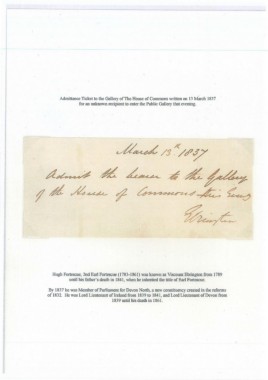 Admittance Ticket to the Gallery of The House of Commons written on 13 March 1837
for an unknown recipient to enter the Public Gallery that evening.
March 13th 1837
Admit the bearer to the Gallery
of the House of Commons this Eveng
Ebrington
Hugh Fortescue, 2nd Earl Fortescue (1783-1861) was known as Viscount Ebrington from 1789
until his father's death in 1841, when he inherited the title of Earl Fortescue.
By 1837 he was Member of Parliament for Devon North, a new constituency created in the reforms
of 1832. He was Lord Lieutenant of Ireland from 1839 to 1841, and Lord Lieutenant of Devon from
1839 until his death in 1861.